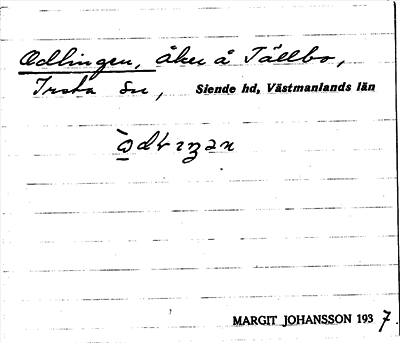 Odlingen, åker å Tällbo,
Irsta sn, Siende hd, Västmanlands län
MARGIT JOHANSSON 1937